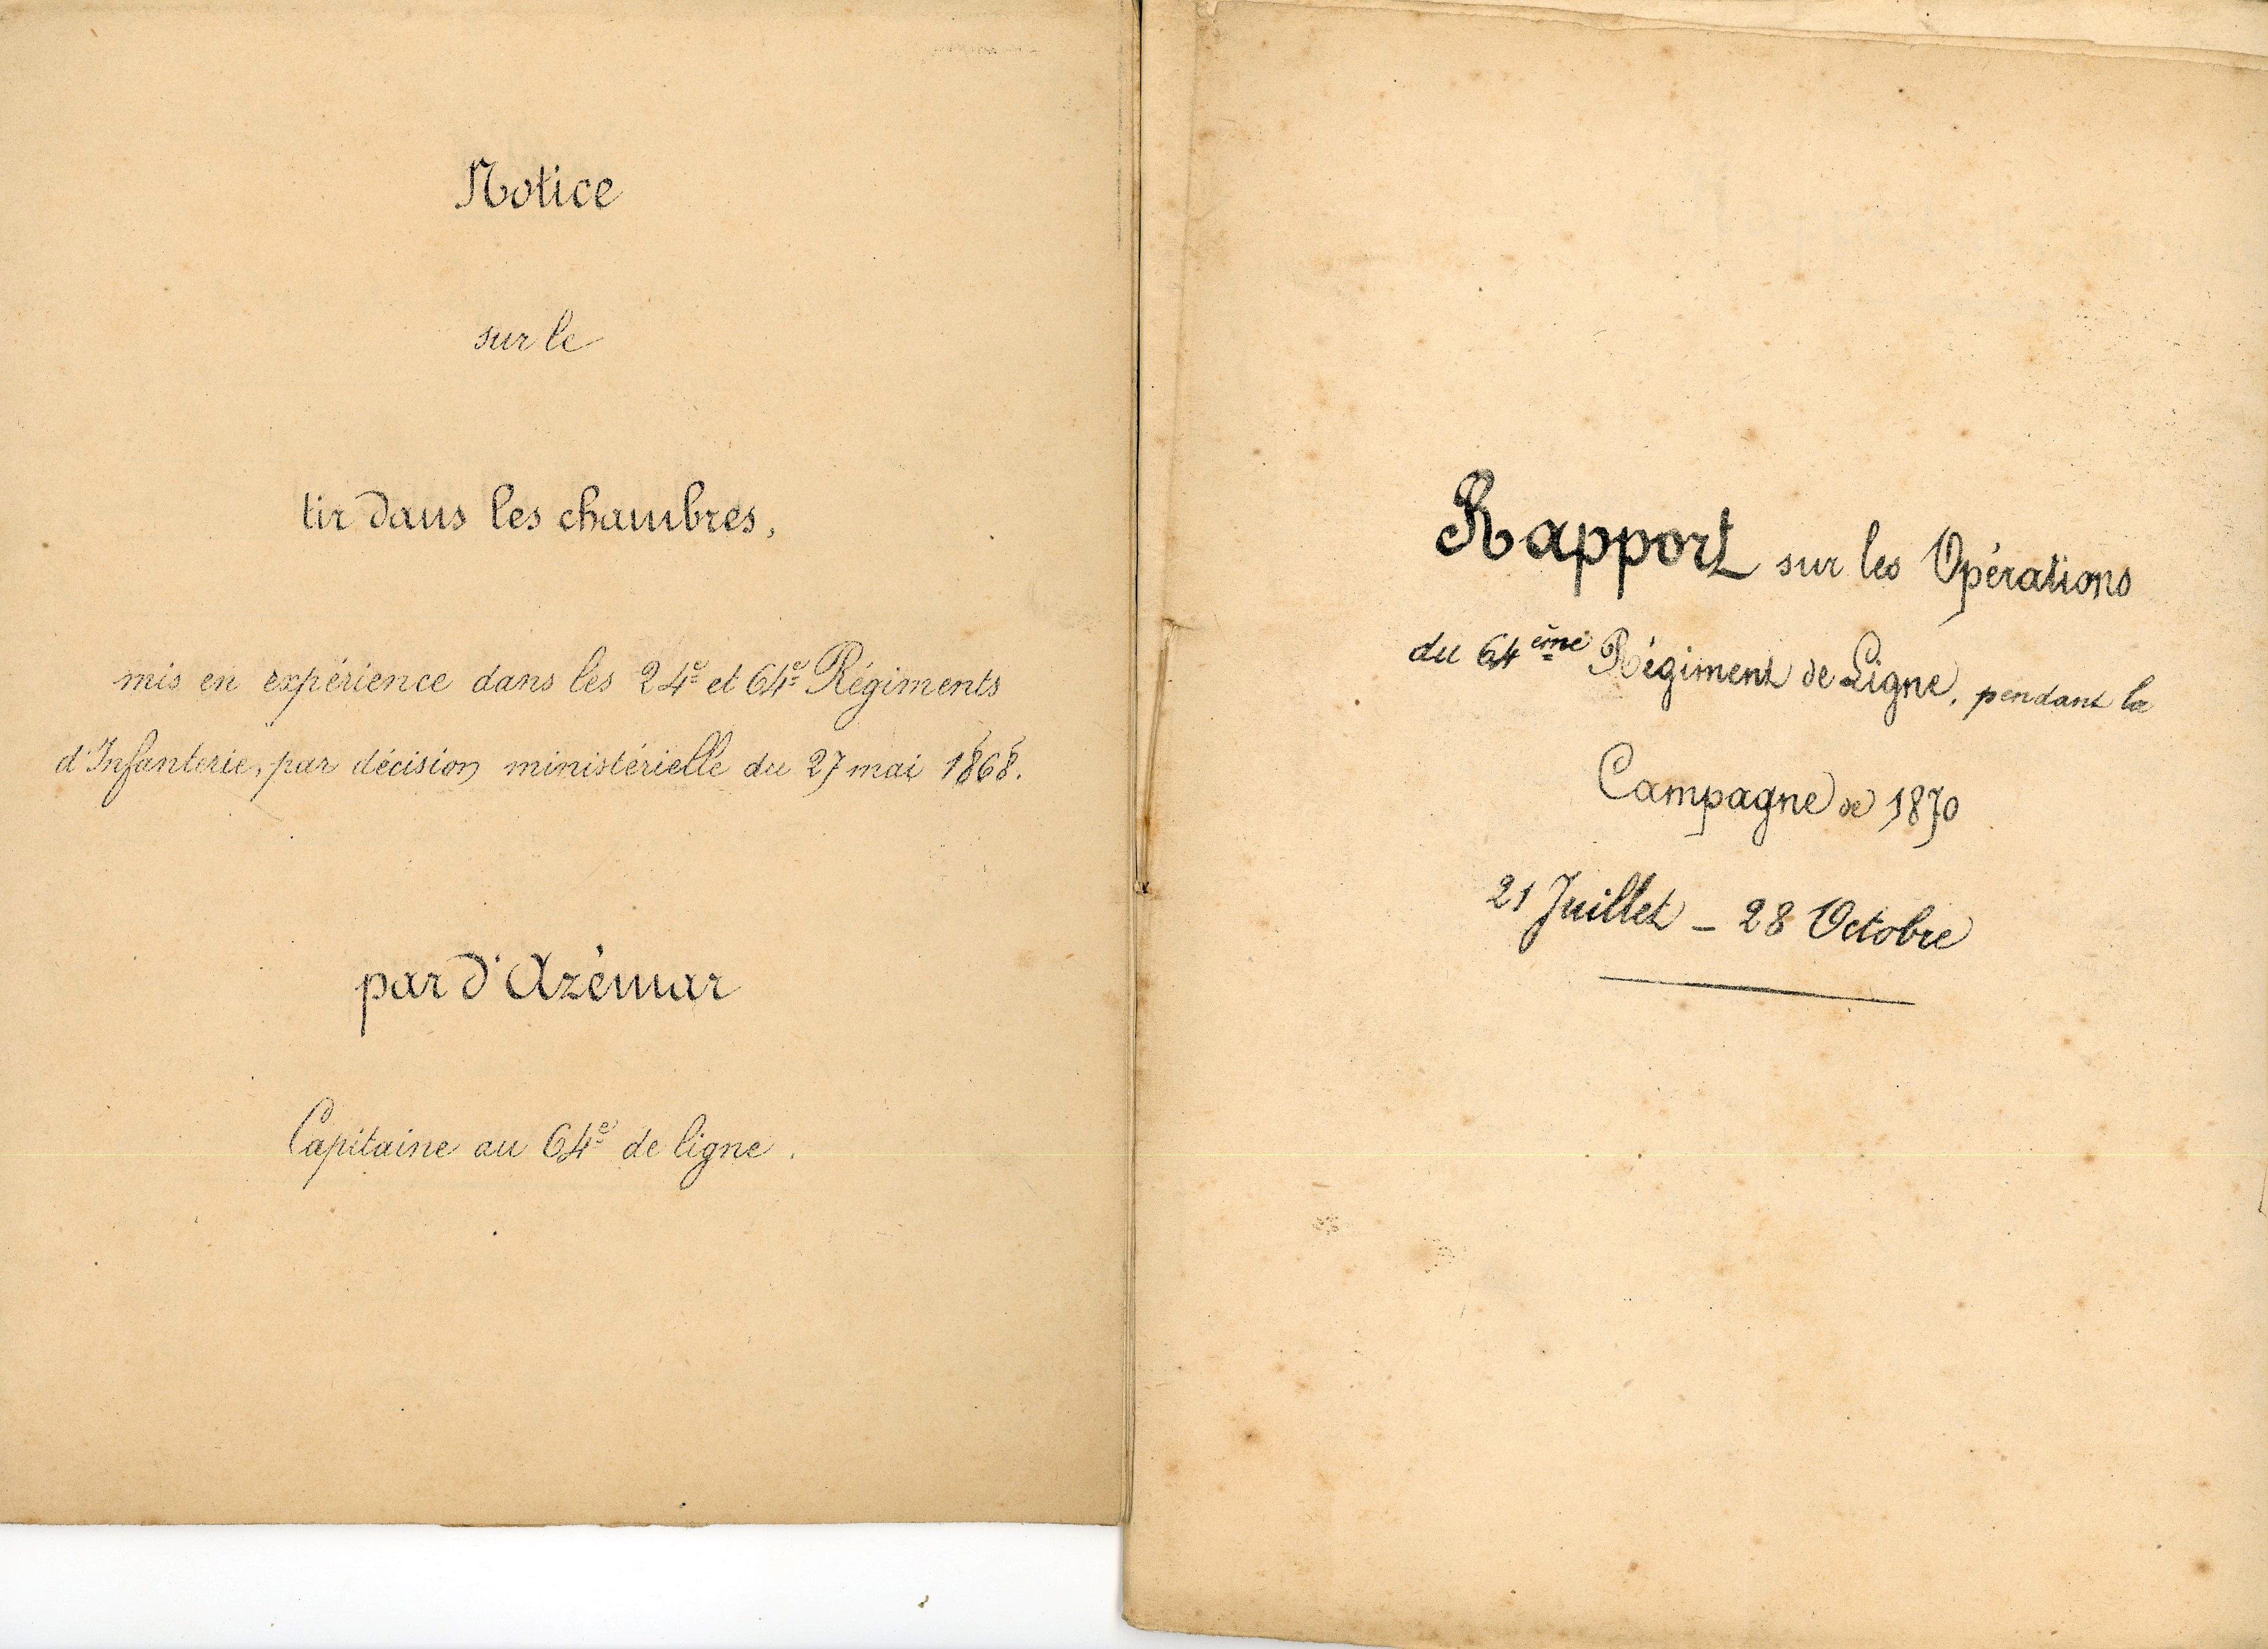 Notice
sur le
tir dans les chambres,
mis en expérience dans les 24e et 64e Régiments
d'Infanterie, par décision ministérielle du 27 mai 1868.
par d'Azémar
Capitaine au 64e de ligne.
Rapport sur les Opérations
du 64ème Régiment de Ligne, pendant la
Campagne de 1870
21 Juillet - 28 Octobre